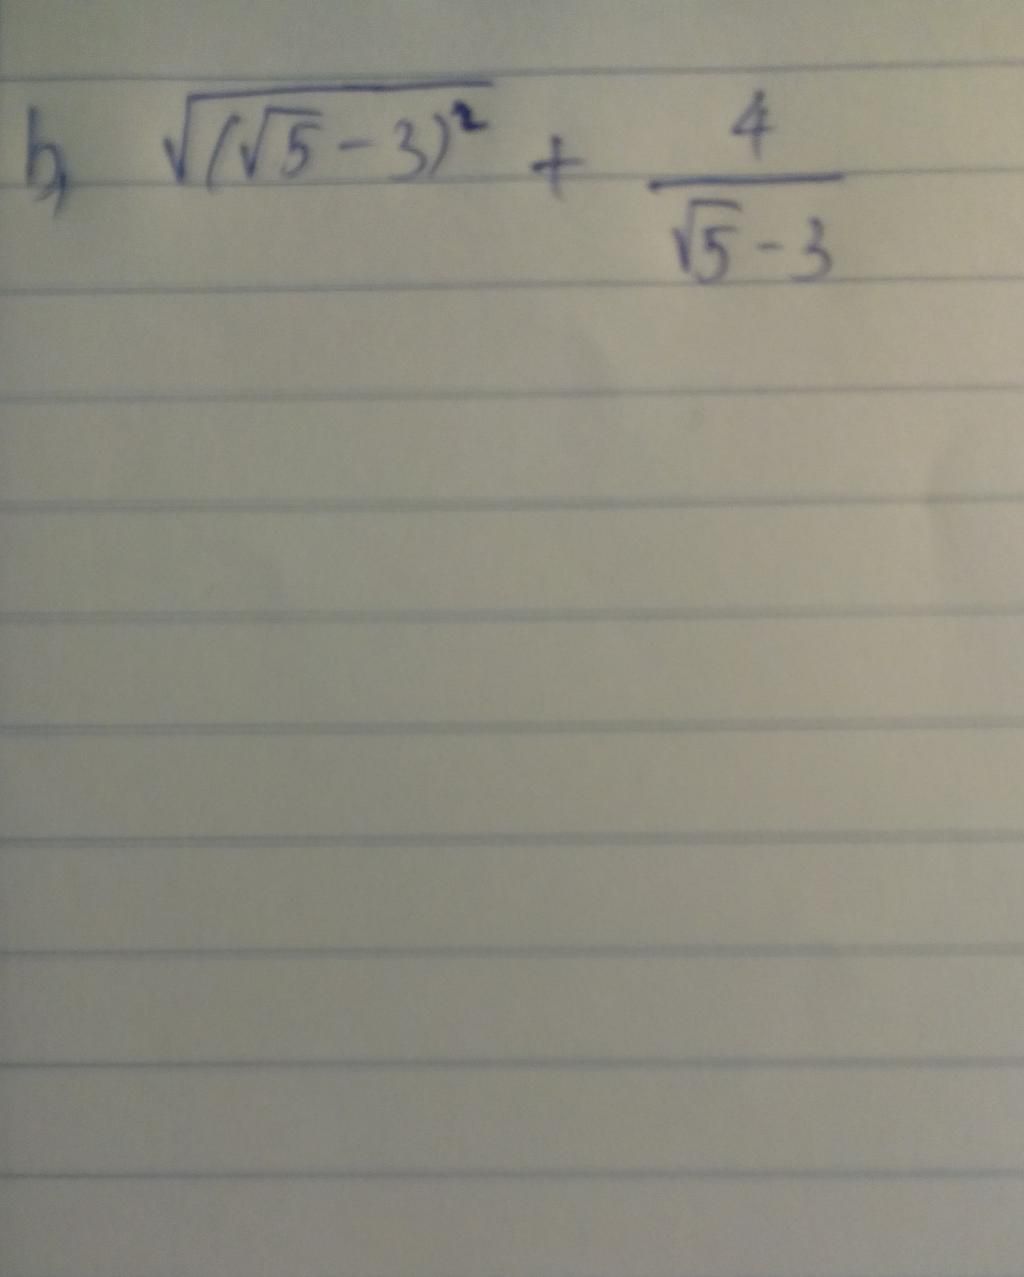 b, √(√5 - 3)² + 4/(√5 - 3)